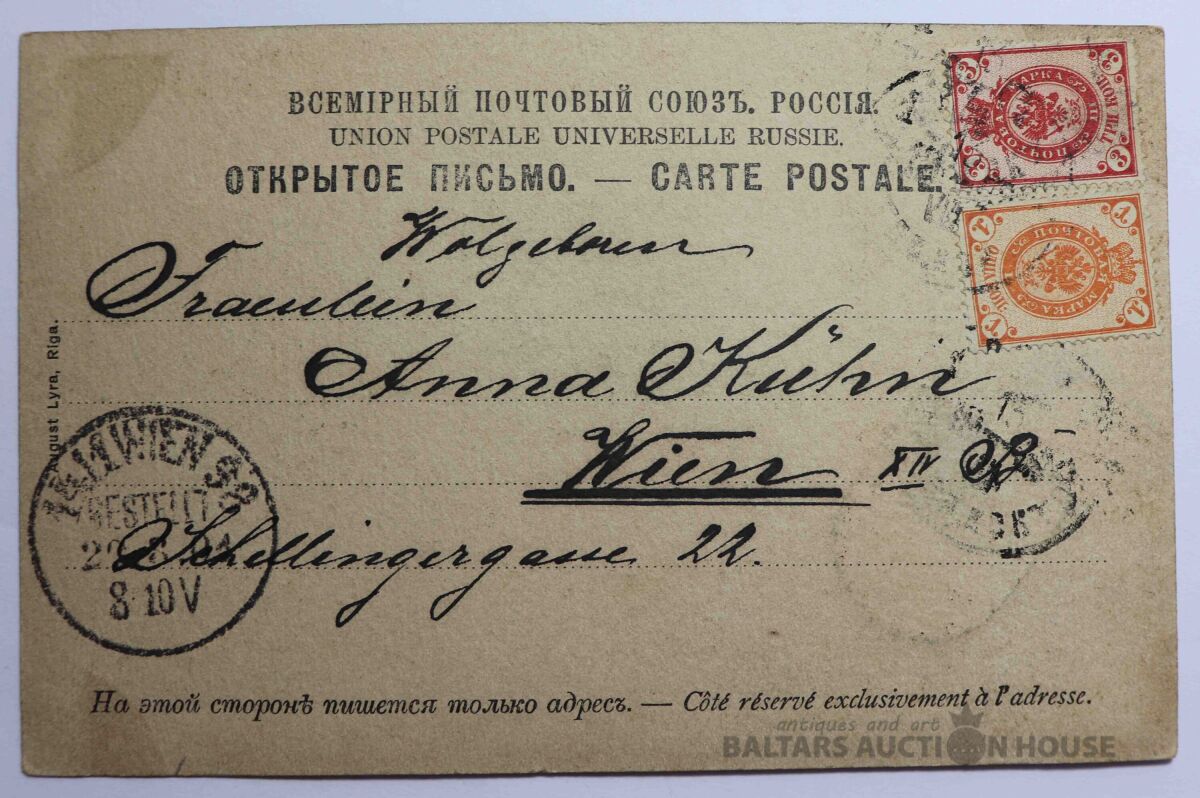 ВСЕМІРНЫЙ ПОЧТОВЫЙ СОЮЗЪ. РОССІЯ.
UNION POSTALE UNIVERSELLE RUSSIE.
ОТКРЫТОЕ ПИСЬМО. — CARTE POSTALE.
Wolgeboren
Fraeulein
Anna Kühn
Wien XIV B
Schellingergasse 22.
August Lyra, Riga.
WIEN
BESTELLT
8·10V
3
3
3
МАРКА
ПОЧТОВАЯ
1
1
1
ПОЧТОВАЯ
МАРКА
На этой сторонѣ пишется только адресъ. — Côté réservé exclusivement à l'adresse.
antiques and art
BALTARS AUCTION HOUSE